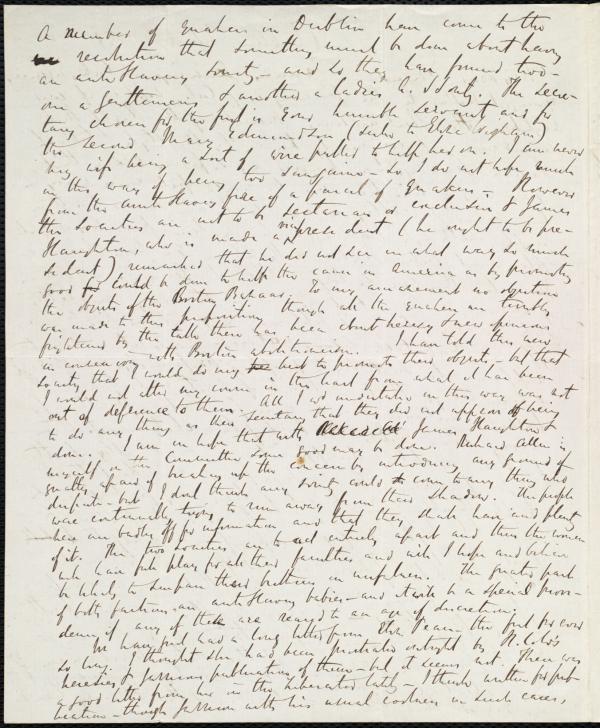 A number of Quakers in Dublin have come to the
resolution that something must be done about having
an anti slavery society - and so they have formed two -
one a gentlemens & another a ladies A. S Society. The secre-
tary chosen for the first is your humble servant and for
the second Mary Edmundson (sister to Eliz Wigham)
my wife being a sort of wire puller to help her on. I am never
in this way of being too sanguine - so I do not hope much
from the anti slavery fire of a parcel of Quakers - However
the societies are not to be sectarian or exclusive & James
Haughton, who is made a vice president (he ought to be pre-
sident) remarked that he did not see in what way so much
good could be done to help the cause in America as by promoting
the objects of the Boston Bazaar. To my amazement no objection
was made to this proposition, though all the Quakers are terribly
frightened by the talk there has been about heresy & new opinions
in connexion with Boston abolitionism. I have told this new
society that I would do my best to promote their objects - but that
I would not alter my course in this land from what it has been
out of deference to them. All I undertake in this way was not
to do any thing as their secretary that they did not approve of being
done. I am in hope that with James Haughton &
myself on the Committee some good may be done. Richard Allen is
greatly afraid of breaking up the concern by introducing any ground of
dispute - but I don't think any society could come to any thing who
were continually trying to run away from their shadow. The people
here are badly off for information and that they shall have and plenty
of it. The two societies are to act entirely apart and thus the women
will have full play for all their faculties and will I hope and believe
be likely to surpass their brethren in usefulness. The greater part
of both factions are anti slavery babies - and it will be a special provi-
dence if any of them are reared to an age of discretion.
We have just had a long letter from Eliz Pease - the first for ever
so long. I thought she had been prostrated outright by
heresies & Garrisons publication of them - but it seems not. There was
a good letter from her in the Liberator lately - I think written for pub-
lication - though Garrison with his usual coolness in such cases,